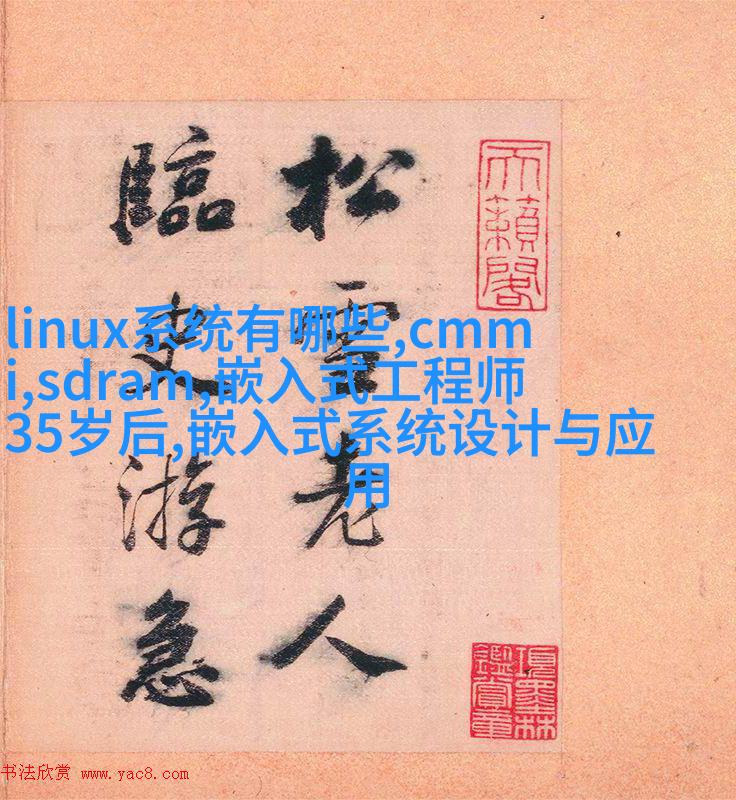 松雪老人
臨史游急
天籟閣
項墨林
鑑賞章
linux系统有哪些,cmm
i,sdram,嵌入式工程师
35岁后,嵌入式系统设计与应
用
书法欣赏 www.yac8.com